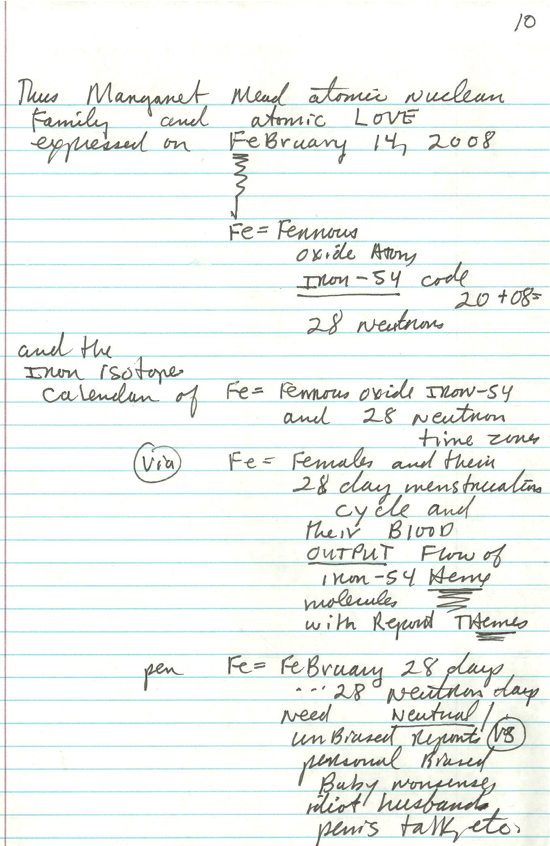 10
Thus Margaret Mead atomic nuclear
Family and atomic LOVE
expressed on FeBruary 14, 2008
Fe = Ferrous
oxide Atoms
Iron-54 code
20 + 08 =
28 neutrons
and the
Iron isotope
Calendar of Fe = Ferrous oxide Iron-54
and 28 neutron
time zones
Via Fe = Females and their
28 day menstruation
cycle and
their Blood
OUTPUT Flow of
iron-54 Heme
molecules
with Report THemes
per Fe = FeBruary 28 days
... 28 Neutron days
need Neutral/
unBiased reports VS
personal Biased
Baby nonsense,
idiot husbands
penis talk, etc.